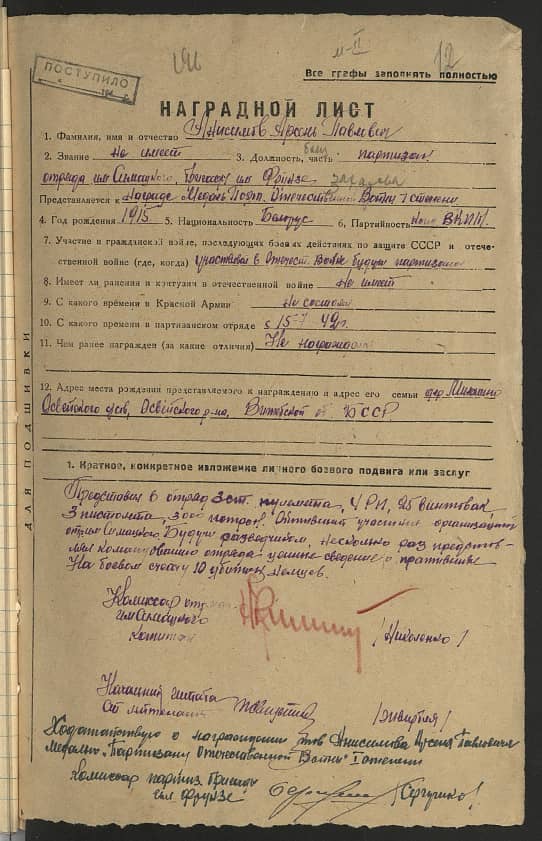 м-II
12
ПОСТУПИЛО
194 г.
Все графы заполнять полностью
НАГРАДНОЙ ЛИСТ
1. Фамилия, имя и отчество Анисимов Арсень Павлович
2. Звание Не имеет 3. Должность, часть быв. партизан
отряда им Симацкого, Бригады им Фрунзе
Представляется к Награде Медаль Парт. Отечествен Войны I степени
4. Год рождения 1915 5. Национальность Беларус 6. Партийность ВКП/б/
7. Участие в гражданской войне, последующих боевых действиях по защите СССР и отече-
ственной войне (где, когда) участвовал в Отечест. Войне будучи партизаном
8. Имеет ли ранения и контузии в отечественной войне Не имеет
9. С какого времени в Красной Армии Не состоял
10. С какого времени в партизанском отряде с 15-7 42 г.
11. Чем ранее награжден (за какие отличия) Не награждался
12. Адрес места рождения представляемого к награждению и адрес его семьи дер.
Освейского с/сов, Освейского р-на, Витебской об. БССР
ДЛЯ ПОДШИВКИ
1. Краткое, конкретное изложение личного боевого подвига или заслуг
Представил в отряд 3 ст. пулемета, 4 РП, 25 винтовак,
3 пистолета, 3000 патрон. Активный участник организации
отряда Симацкого. Будучи разведчиком, несколько раз предстов-
лял командованию отряда ценные сведение о противнике
На боевом счету 10 убитых немцев.
Комиссар отряда
им Симацкого
капитан /Николенко/
Начальник штаба
ст. лейтенант
Ходатайствую о награждении тов Анисимова Арсния Павловича
медалью "Партизану Отечественной Войны" I степени
Комиссар партиз. бригады
им Фрунзе